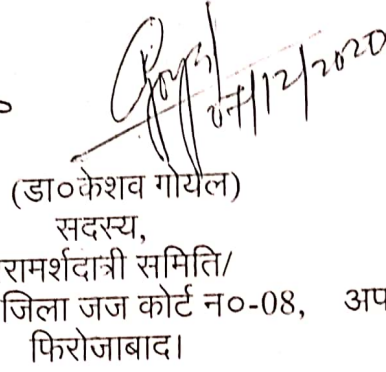 07/12/2020
(डा०केशव गोयल)
सदस्य,
रामर्शदात्री समिति/
जिला जज कोर्ट न०-08, अप
फिरोजाबाद।